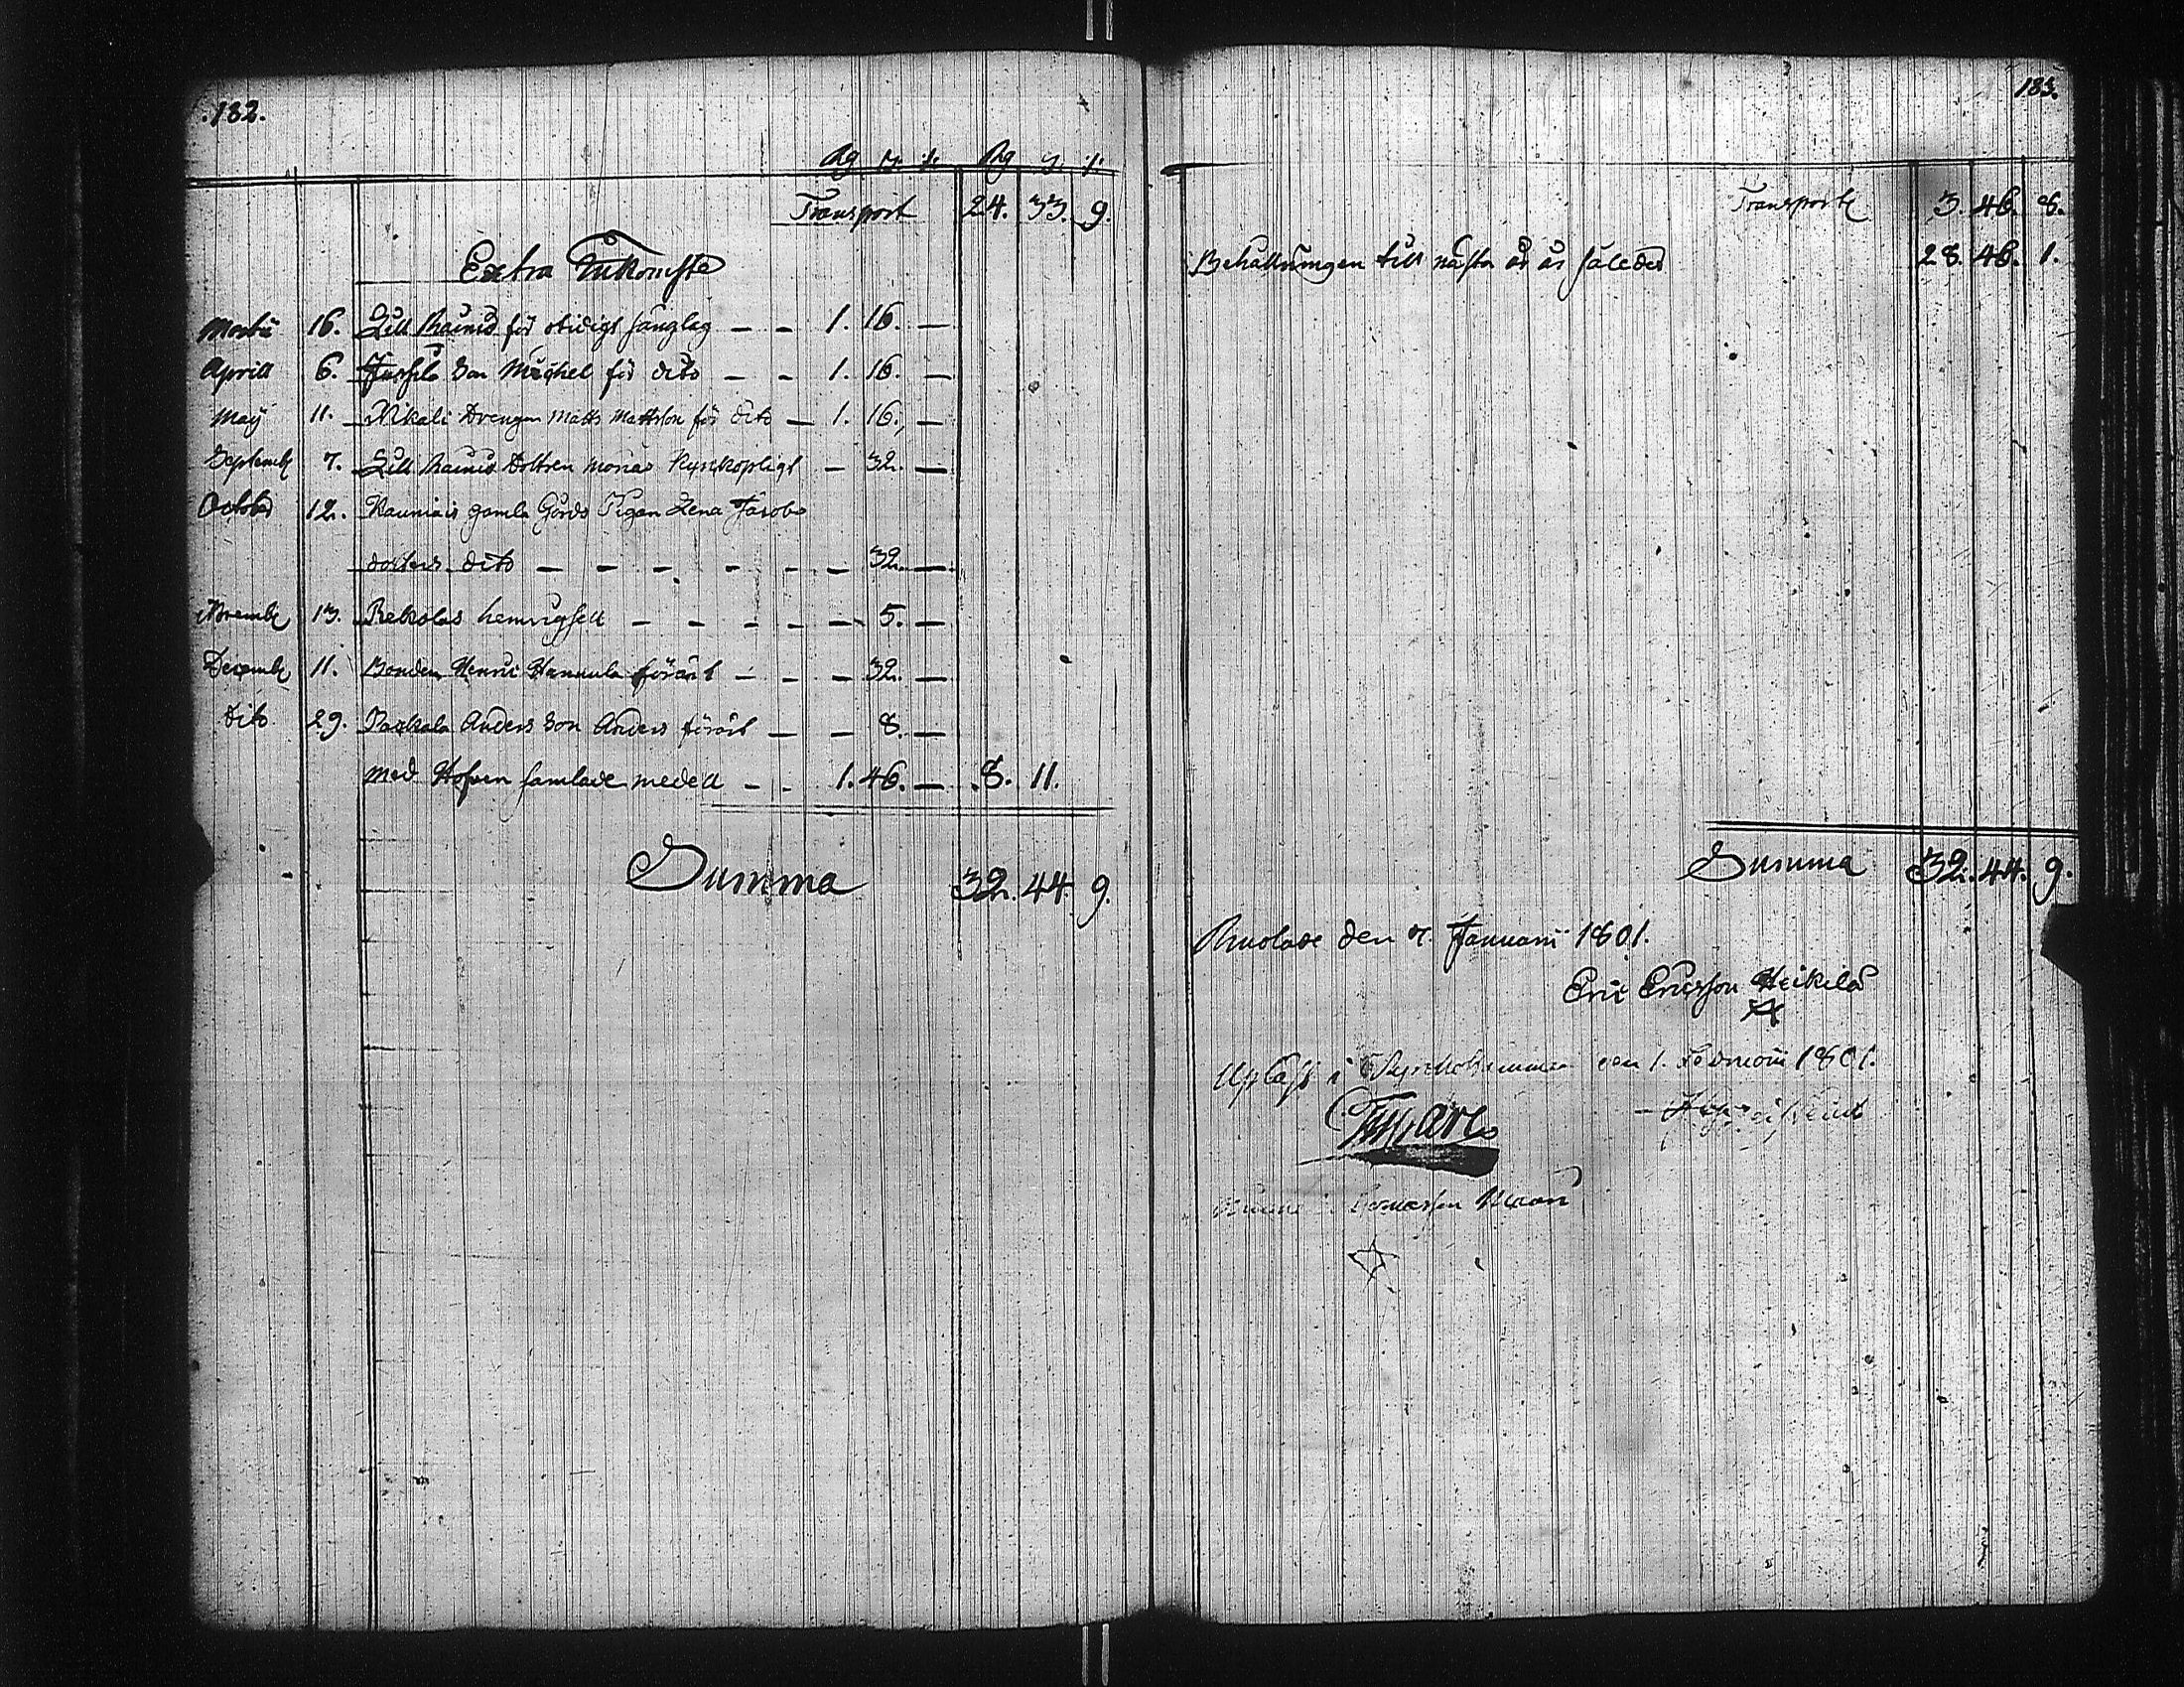 182.
Rg s. :/. Rg s. :/.
Transport 24. 33. 9.
Extra Inkomste
Martii 16. Lill Rainis för otidigt sänglag — — 1. 16. —
Aprill 6. Jussila Son Michel för dito — — 1. 16. —
May 11. Nikali Drengen Matts Mattsson för dito — 1. 16. —
Septemb 7. Lill Rainis Dottren Marias Kyrkopligt — 32. —
October 12. Rauniais gamla Gårds Pigan Lena Jacobs
dotters dito — — — — — — 32. —
Novemb 13. Rekolas — — — — — 5. —
Decemb 11. Bonden Henric Hannula förärt — — — 32. —
Dito 29. Paxkala Anders Son Anders förärt — — 8. —
Med Hofven samlade medell — — 1. 46. — 8. 11.
Summa 32. 44. 9.
183.
Transport 3. 46. 8.
Behållningen till nästa år är således 28. 46. 1.
Summa 32. 44. 9.
den 7. Januarii 1801.
Eric Ericsson Heikilä
Upläst i den 1. Februarii 1801.